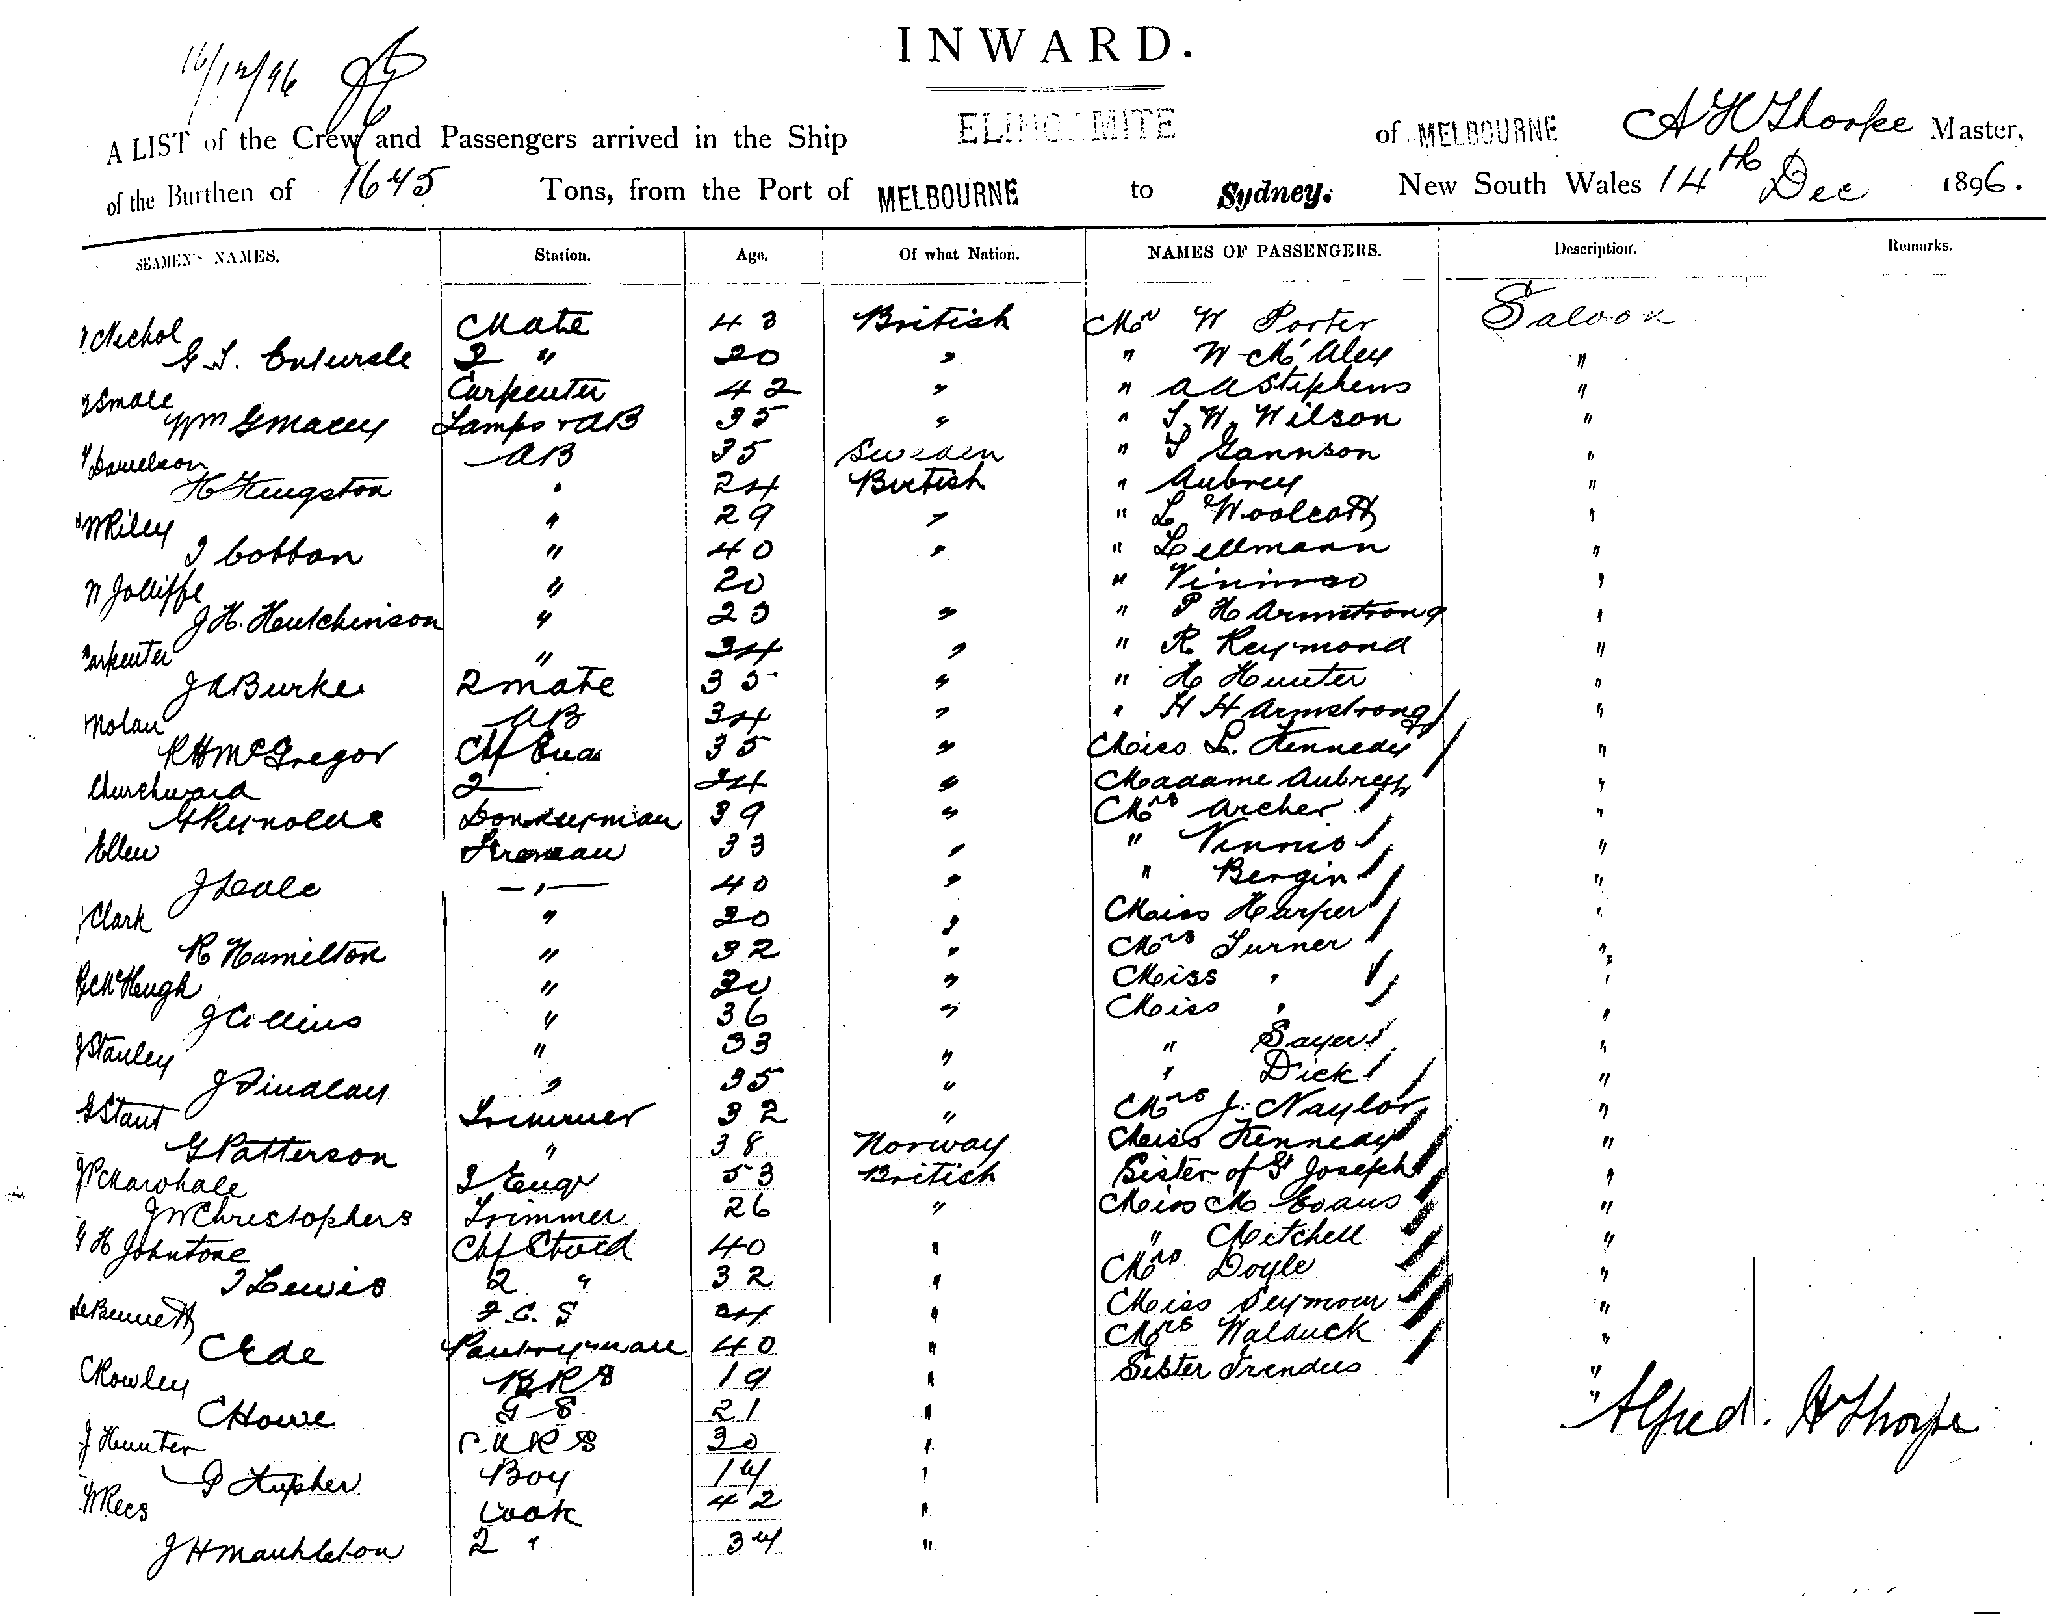 16/12/96
INWARD.
A LIST of the Crew and Passengers arrived in the Ship ELINGAMITE of MELBOURNE A H Thorpe Master,
of the Burthen of 1645 Tons, from the Port of MELBOURNE to Sydney. New South Wales 14th Dec 1896.
SEAMEN'S NAMES. Station. Age. Of what Nation. NAMES OF PASSENGERS. Description. Remarks.
Nichol Mate 43 British Mr W Porter Saloon
G. S. 2 " 20 " " W McAley "
Smale Carpenter 42 " " A A Stephens "
Wm G Macey Lamps & AB 35 " " T. W. Wilson "
Danielson AB 35 Sweden " T Gannson "
H Kingston " 24 British " Aubrey "
W Riley " 29 " " L Woolcott "
T Cobban " 40 " " Lellmann "
W Jolliffe " 20 "
J H. Hutchinson " 23 " " P H Armstrong "
Carpenter " 34 " " R Raymond "
J A Burke 2 mate 35 " " H Hunter "
Nolan AB 34 " " H H Armstrong "
R H McGregor Chf 35 " Miss L. Kennedy "
Churchward 2 34 " Madame Aubrey "
G Reynolds Donkeyman 39 " Mrs Archer "
Ellen Fireman 33 " " "
J Leale " 40 " " Bergin "
Clark " 30 " Miss Harper "
R Hamilton " 32 " Mrs Turner "
McHugh " 30 " Miss " "
J Collins " 36 " Miss " "
J Stanley " 33 " " Sayer "
J Findlay " 35 " " Dick "
G Stant Trimmer 32 " Mrs J. Naylor "
G Patterson " 38 Norway Miss Kennedy "
53 British Sister of St Joseph "
J W Christophers Trimmer 26 " Miss M Evans "
H Johntone Chf Stwd 40 " " Mitchell "
T Lewis 2 " 32 " Mrs Doyle "
Bennett F. C. S 24 " Miss Seymour "
C Ede Pantryman 40 " Mrs Walduck "
C Rowley B R S 19 " Sister "
C Howe G S 21 " "
J Hunter 30 " Alfred. H Thorpe
Boy 14 "
W Rees Cook 42 "
J H 2 " 34 "